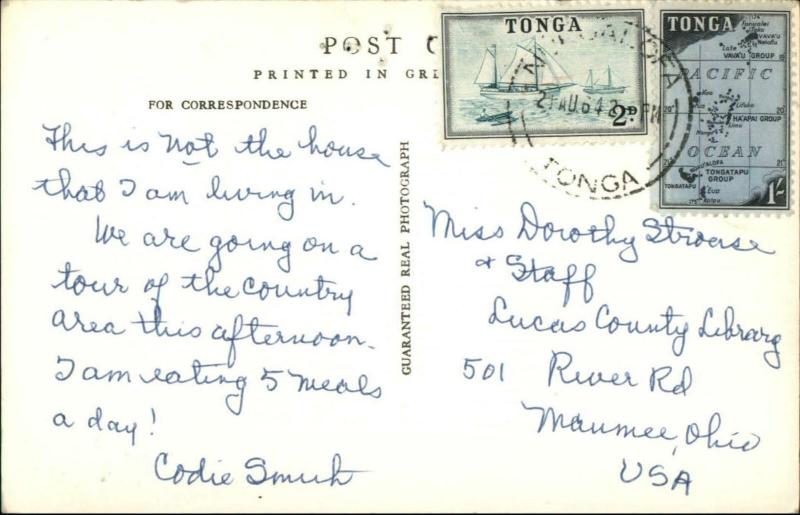 POST C
PRINTED IN GRE
FOR CORRESPONDENCE
This is not the house
that I am living in.
We are going on a
tour of the country
area this afternoon.
I am eating 5 meals
a day!
Codie Smith
GUARANTEED REAL PHOTOGRAPH
TONGA
2D
NUKUALOFA
21 AU 64
TONGA
TONGA
VAVA'U
VAVA'U GROUP
PACIFIC
20°
20°
HA'APAI GROUP
OCEAN
21°
21°
NUKU'ALOFA
TONGATAPU
GROUP
TONGATAPU
Eua
1/-
Miss Dorothy Strouse
& Staff
Lucas County Library
501 River Rd
Maumee, Ohio
USA